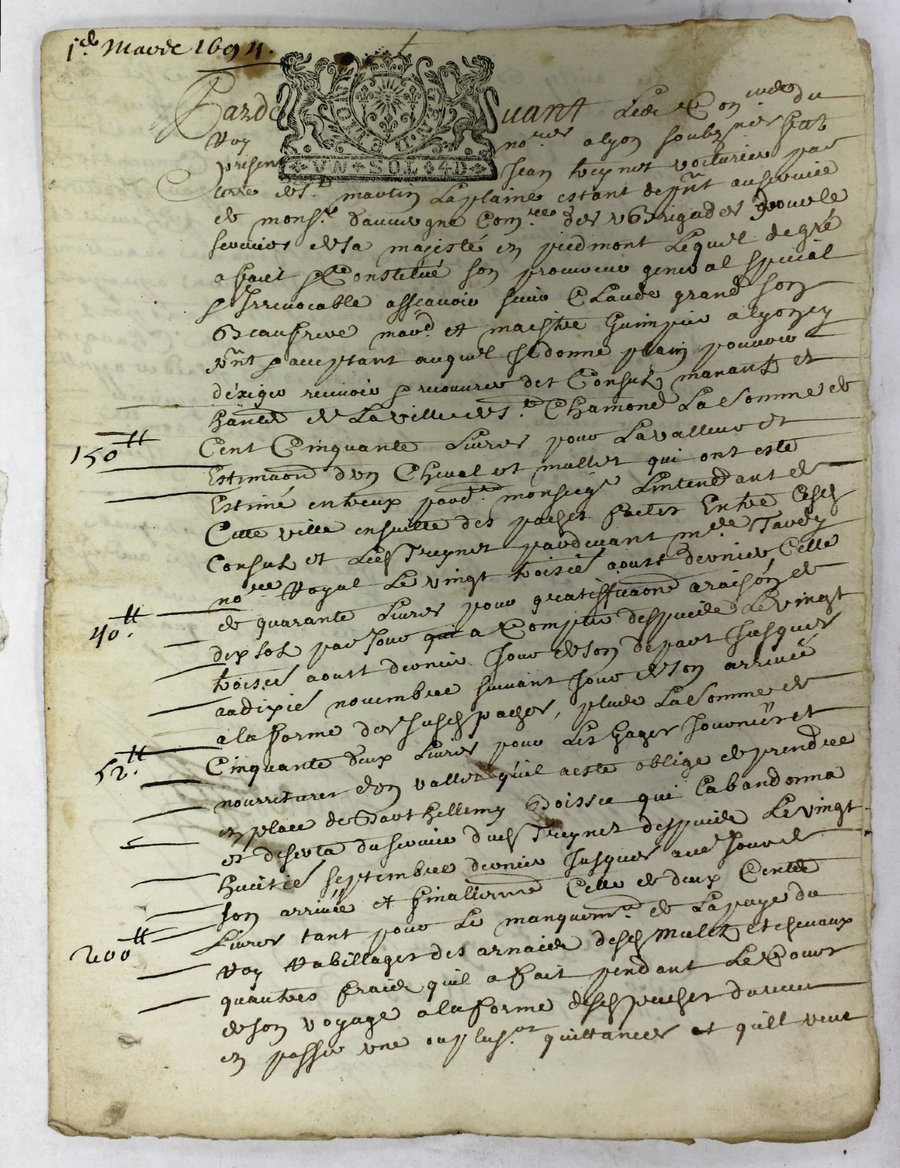 1er Mars 1694.
GENER LION
VN SOL 4D
Pardevant Les Con du
Roy no.res a Lyon soubzignés fut
present Jean treynet voiturier par
terre de St. martin La plaine estant de pnt au service
de monsr. dauvergne Com.re des Brigades pour le
service de sa majesté en piedmont Lequel de gré
a fait Constitué son procureur general special
& Irrevocable asscavoir sieur Claude grand son
Beaufrere mard. et maistre guimpier a lyon cy
pnt & acceptant auquel Il donne plain pouvoir
d'exiger recevoir & recouvrer des Consulz manantz et
hântz de La ville de St. Chamond La somme de
150ₜₜ Cent Cinquante Livres pour La valleur et
Estimaon d'un Cheval et mullet qui ont esté
Estimé entreux pard. monseigr. Lintendant de
Cette ville ensuitte des paches faites Entre Lesd.
Consulz et Led. Treynet pardevant me. Tardy
no.re Royal Le vingt troisie aoust dernier Celle
40ₜₜ. de quarante Livres pour gratiffication a raison de
dix solz par Jour a Compter despuis Le vingt
troisie aoust dernier Jour de son depart Jusques
au dixie novembre suivant Jour de son arrivée
a la forme des susd. paches, plus La somme de
52ₜₜ. Cinquante deux Livres pour Les gages Journées et
nourritures d'un vallet qu'il a esté obligé de prendre
en place de Barthellemy Boissie qui L'abandonna
et deserta du service dud. Treynet despuis Le vingt
huitie septembre dernier Jusques au Jour de
son arrivée et finallemt. Celle de deux Centz
200ₜₜ Livres tant pour Le manquemt. de La paye du
Roy habillages des arnaix desd. mulletz et chevaux
qu'autres fraix qu'il a fait pendant Le Cours
de son voyage a la forme desd. paches du receu
en passer une ou plus.rs quittances et qu'Il veut